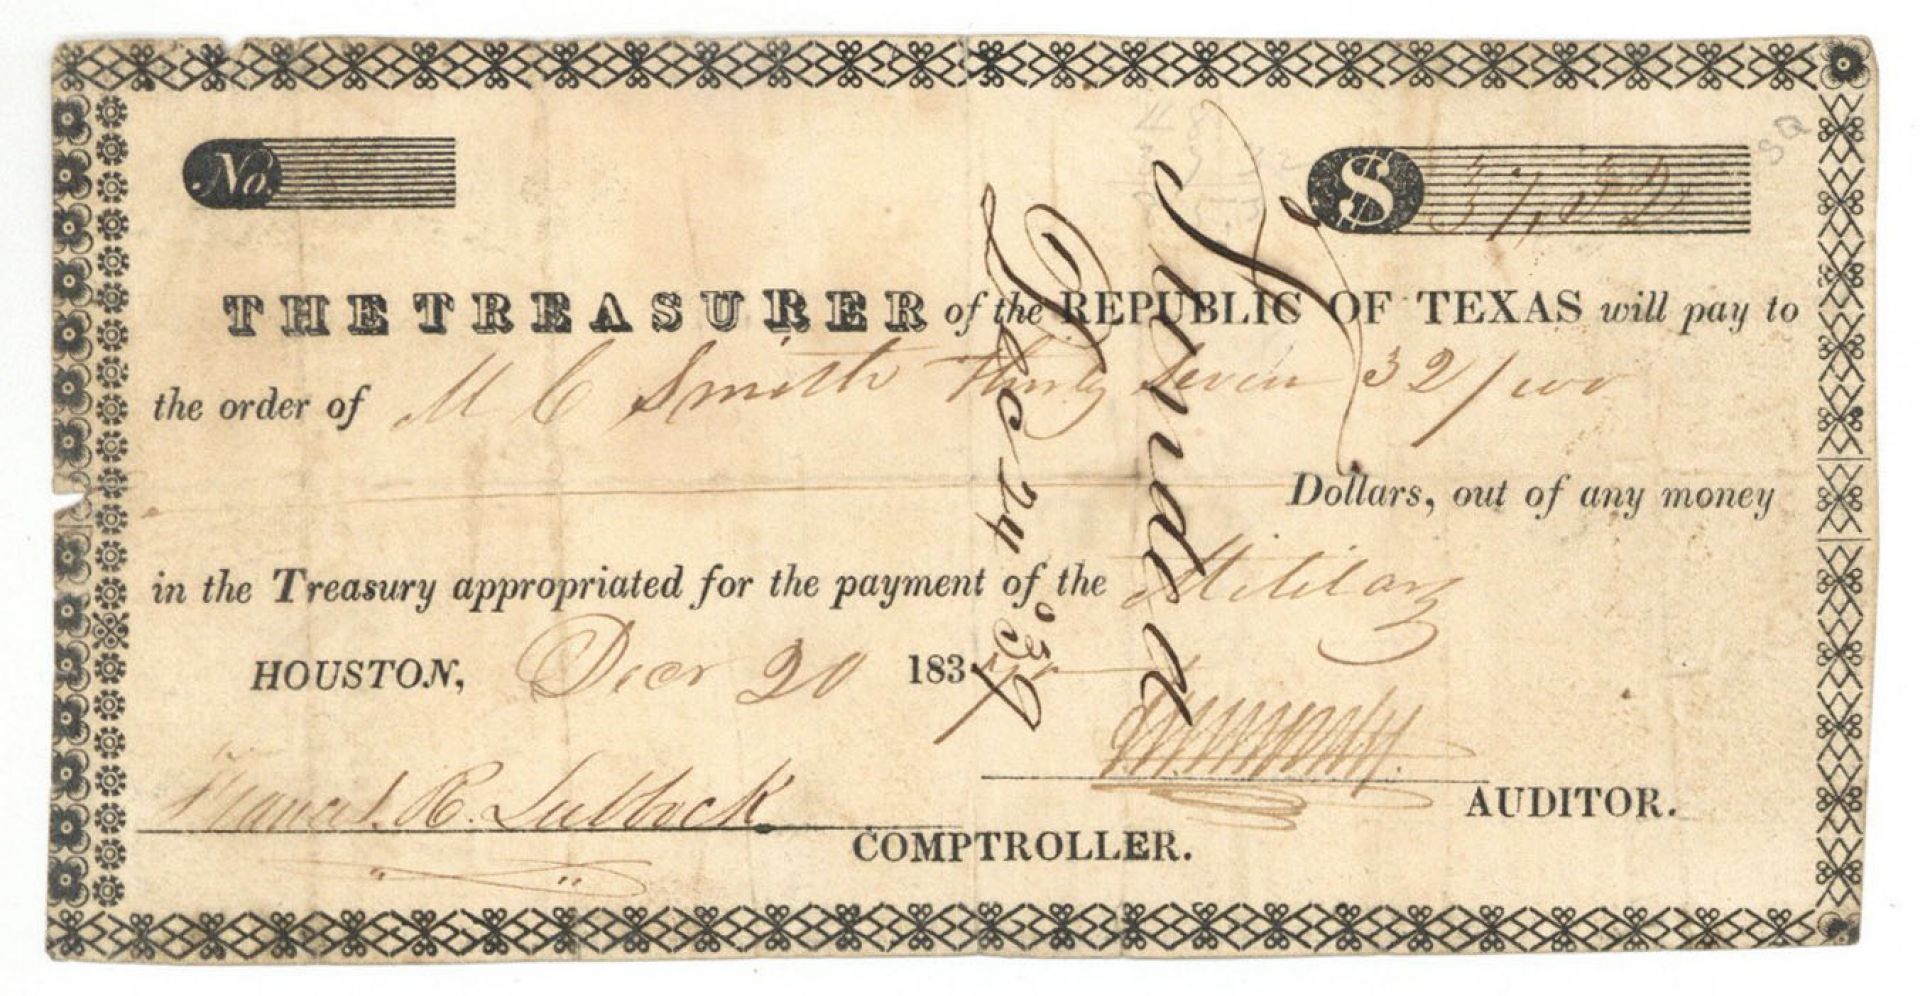 No.
$ 37,32
THE TREASURER of the REPUBLIC OF TEXAS will pay to
the order of M C Smith Thirty Seven 32/100
Dollars, out of any money
in the Treasury appropriated for the payment of the Military
HOUSTON, Decr 20 1837
AUDITOR.
Francis. R. Lubbock
COMPTROLLER.
Funded
Dec 24 '37